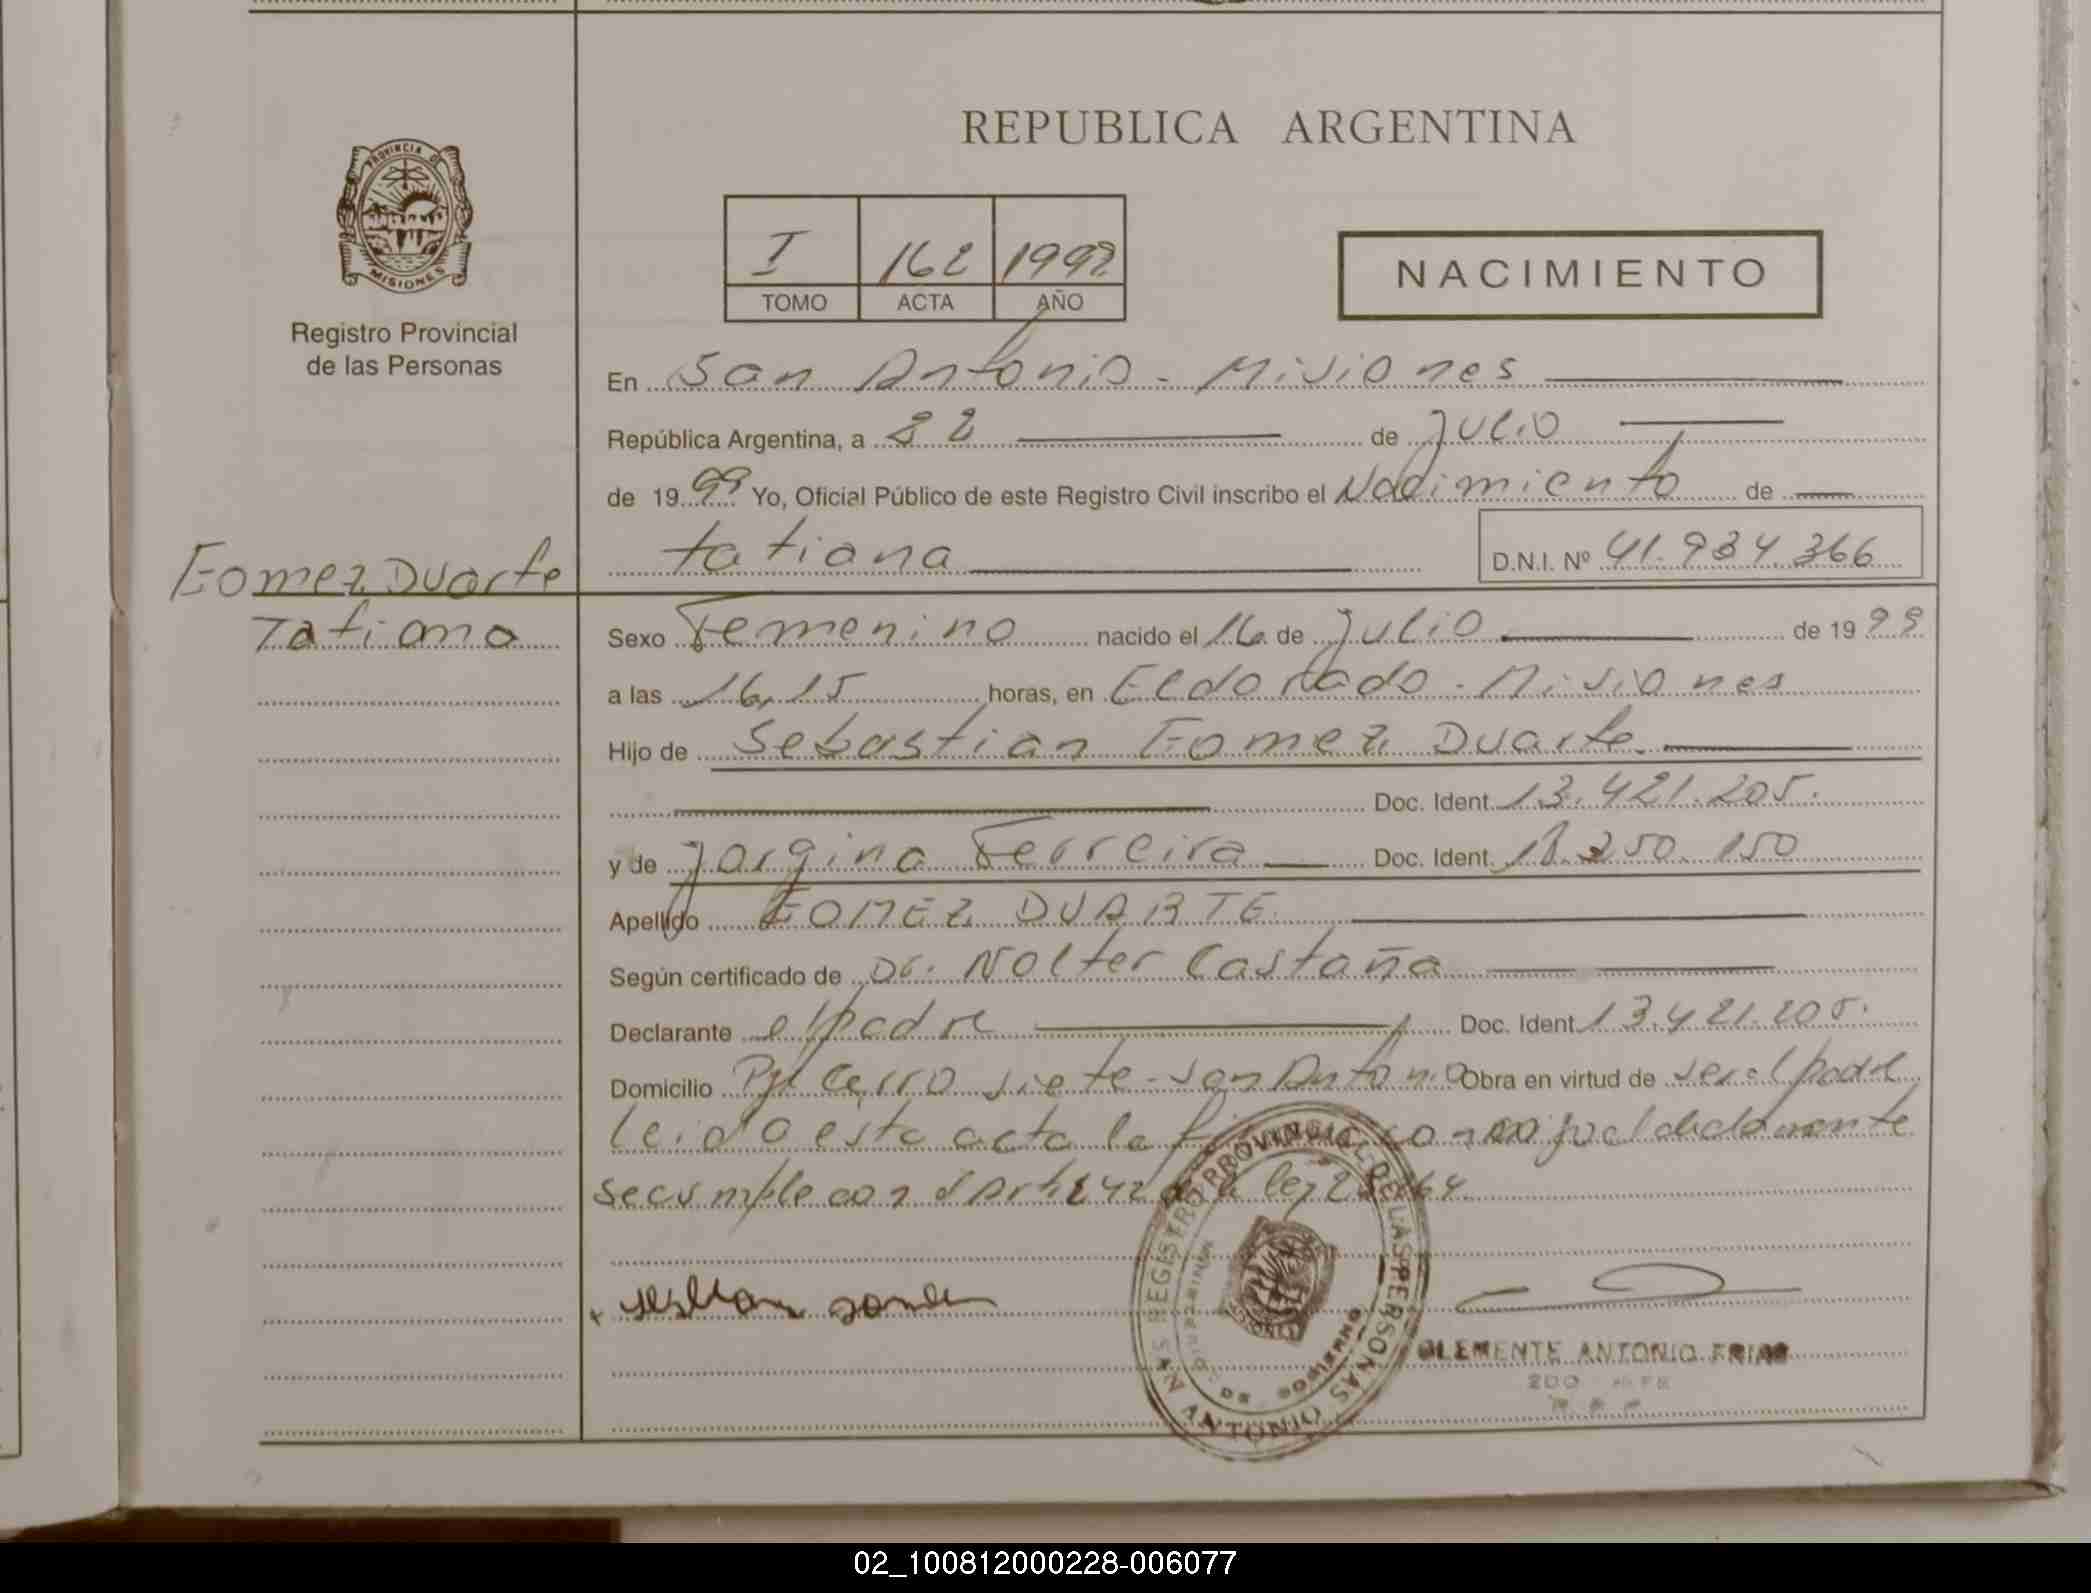 REPUBLICA ARGENTINA
PROVINCIA DE
MISIONES
Registro Provincial
de las Personas
I 162 1999
TOMO ACTA AÑO
NACIMIENTO
En San Antonio - Misiones
República Argentina, a 22 de Julio
de 1999 Yo, Oficial Público de este Registro Civil inscribo el Nacimiento de
Tatiana D.N.I. Nº 41.934.366
Gomez Duarte
Tatiana
Sexo Femenino nacido el 16 de Julio de 1999
a las 16,15 horas, en Eldorado - Misiones
Hijo de Sebastian Gomez Duarte
Doc. Ident. 13.421.205.
y de Jorgina Ferreira Doc. Ident. 250.150
Apellido GOMEZ DUARTE
Según certificado de Dr. Nolter Castaña
Declarante el padre Doc. Ident. 13.421.205.
Domicilio Cerro Siete - San Antonio Obra en virtud de ser el padre
Leido esta acta la conmigo el declarante
se cumple con el Art. ley
REGISTRO PROVINCIAL DE LAS PERSONAS
SAN ANTONIO
MISIONES
GOBIERNO
CLEMENTE ANTONIO FRIAS
2DO JEFE
02_100812000228-006077